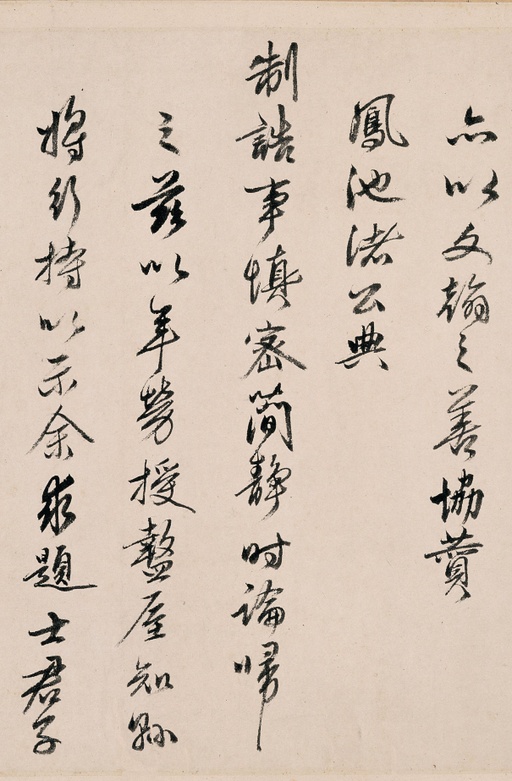 亦以文翰之善協贊
鳳池諸公典
制誥事慎密簡静时論歸
之茲以年勞授盩厔知縣
將行持以示余求題士君子